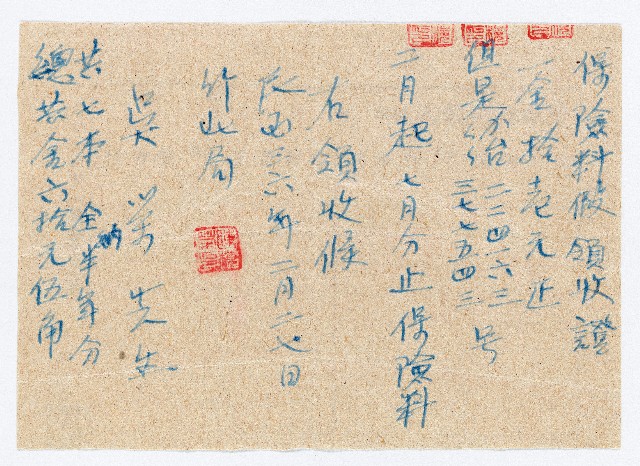 保險料假領收證
一金拾壱元止
但是分台二二四二六三 三七七五四三 号
二月起七月分止保險料
右領收候
民国三六年二月二七日
竹山局
吳 萬 先生
共七本 全納半年分
總共金六拾元伍角